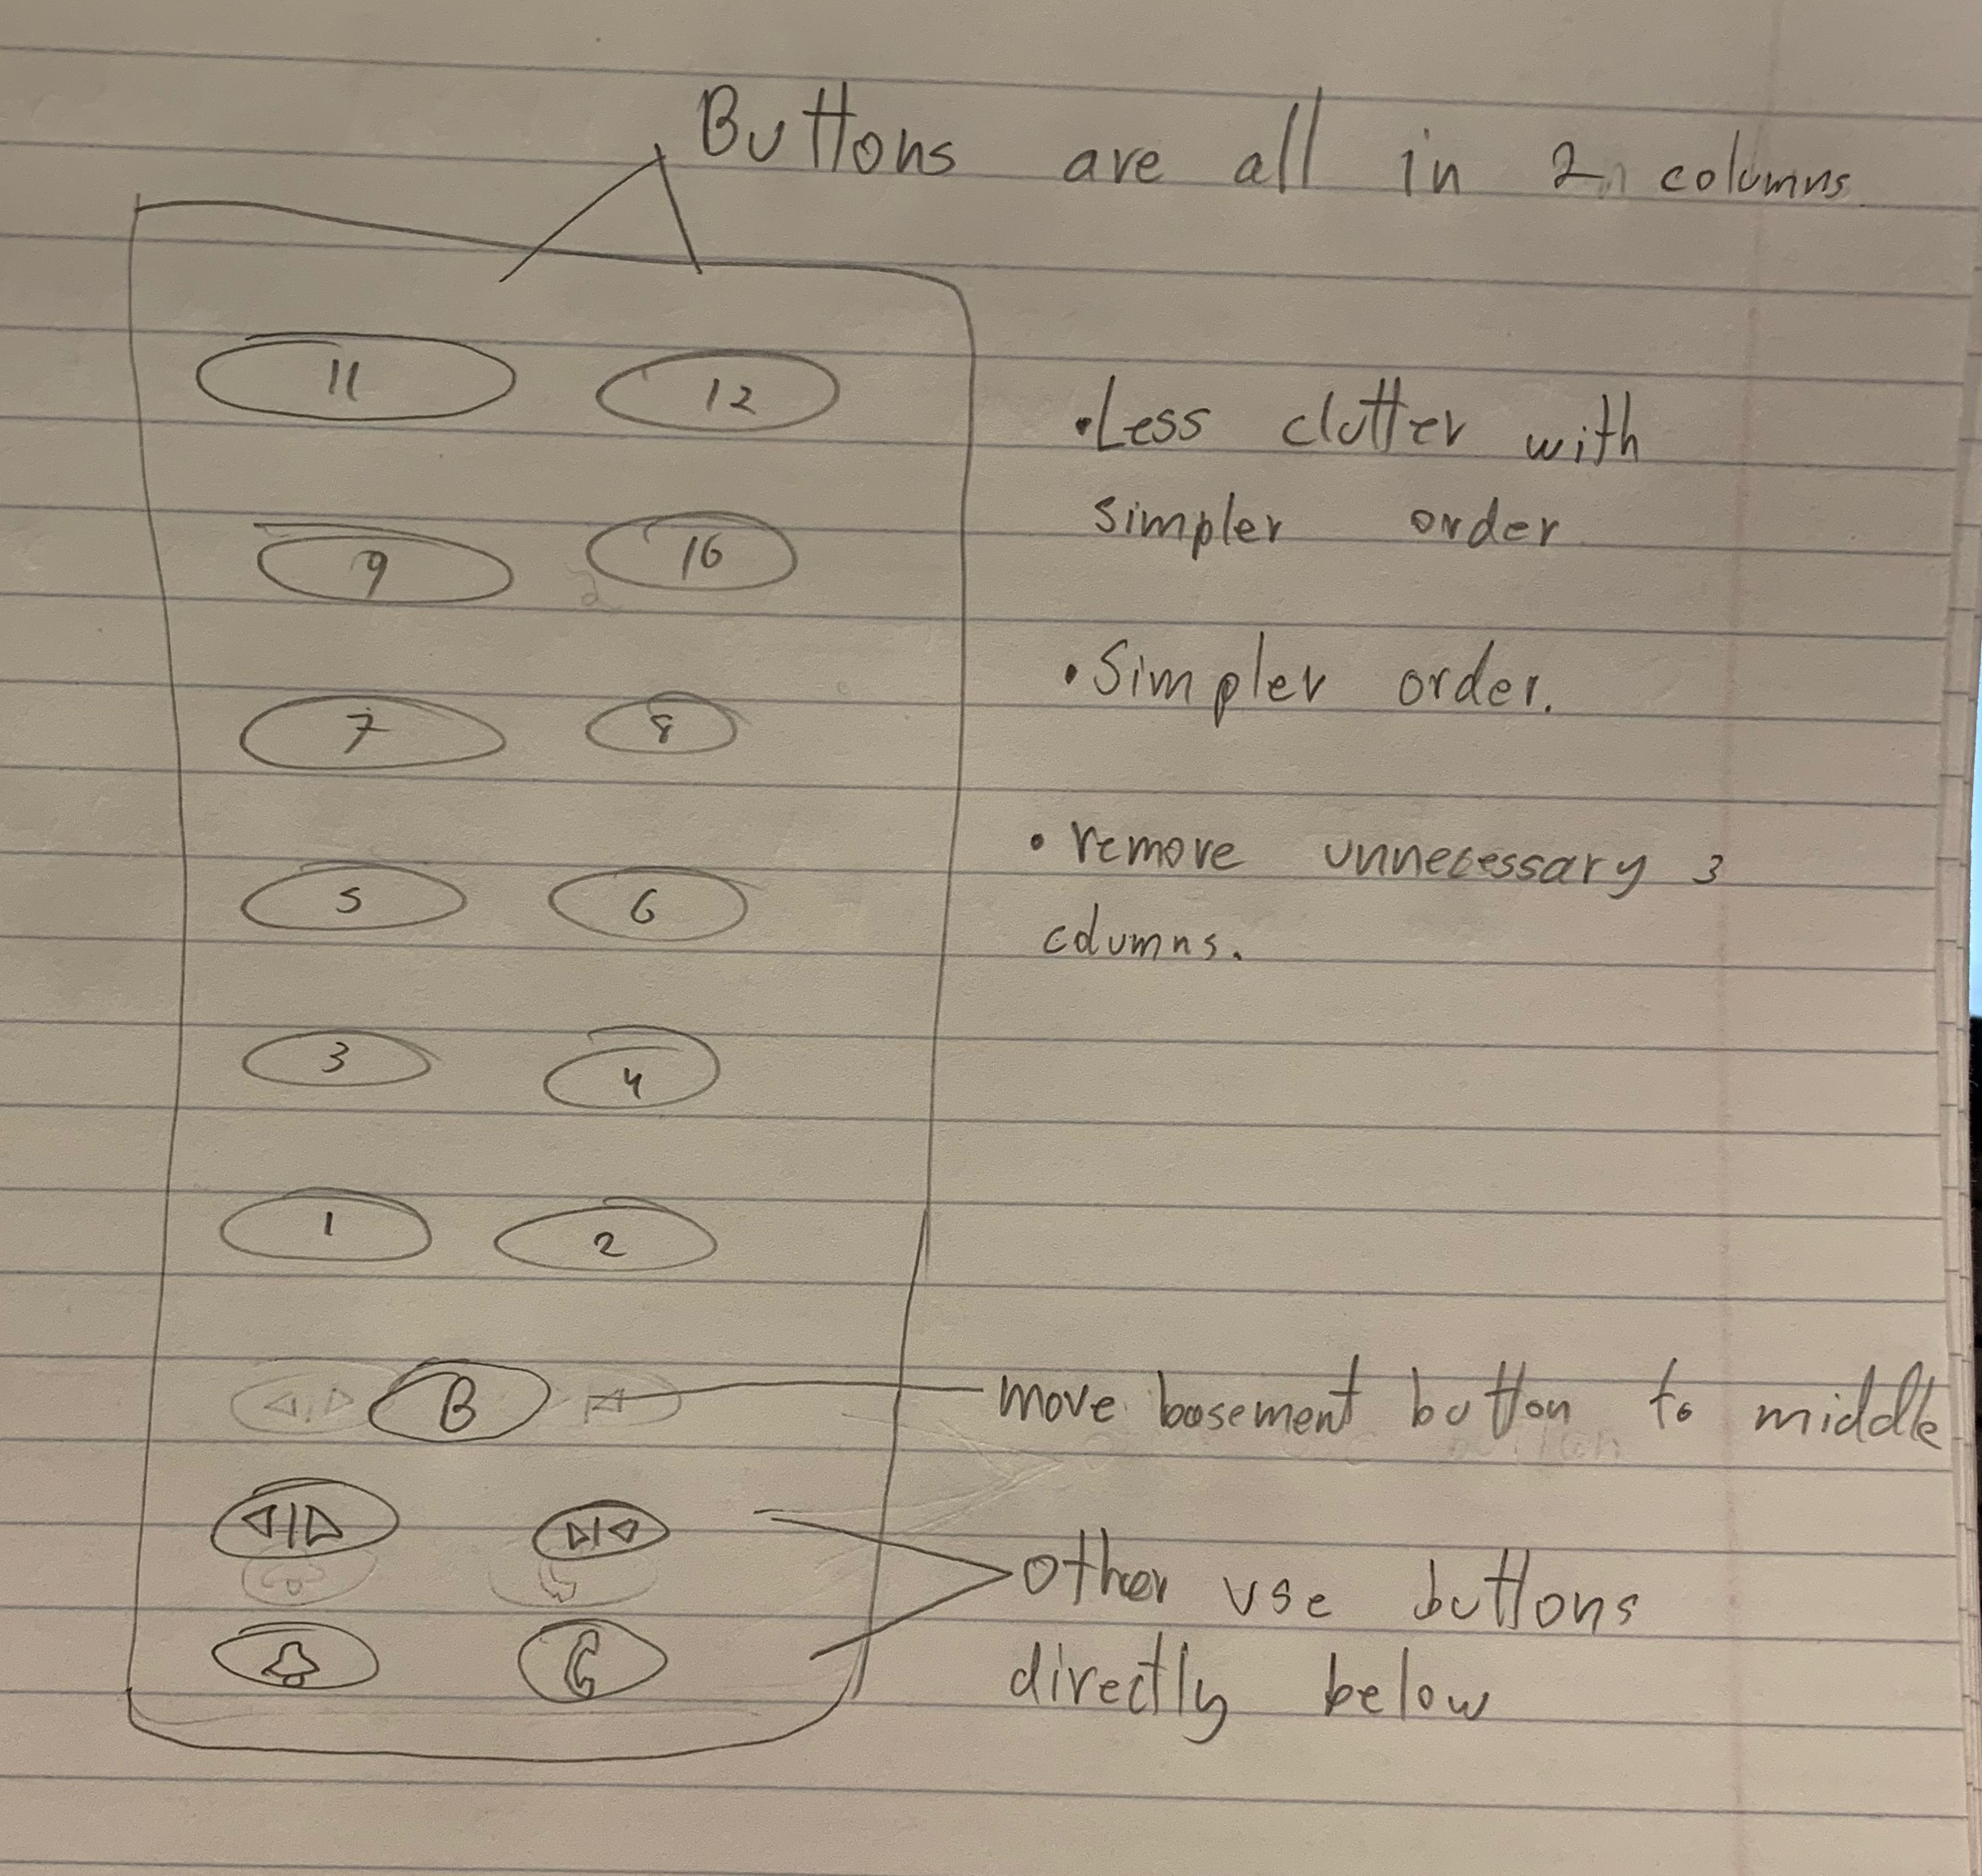 Buttons are all in 2 columns.
11 12
• Less clutter with
simpler order
9 10
• Simpler order.
7 8
• remove unnecessary 3
columns.
5 6
3 4
1 2
B
move basement button to middle
other use buttons
directly below